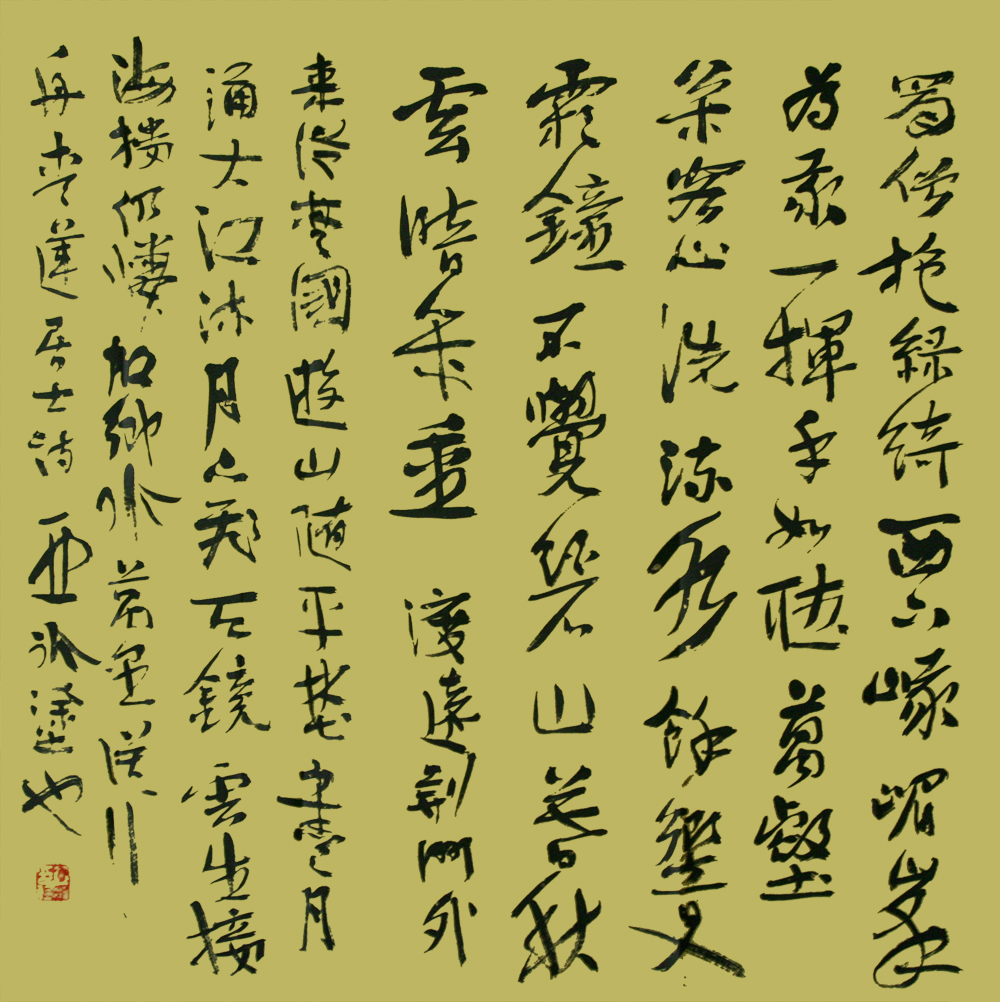 蜀僧抱綠綺西下峨嵋峯
為我一揮手如聽萬壑
枀客心洗流水餘響入
霜鐘不覺碧山暮秋
雲暗幾重 渡遠荊門外
來從楚國遊山隨平埜盡月
涌大江流月下飛天鏡雲生接
海樓仍憐故鄉水萬里送行
舟青蓮居士詩 亞冰塗也